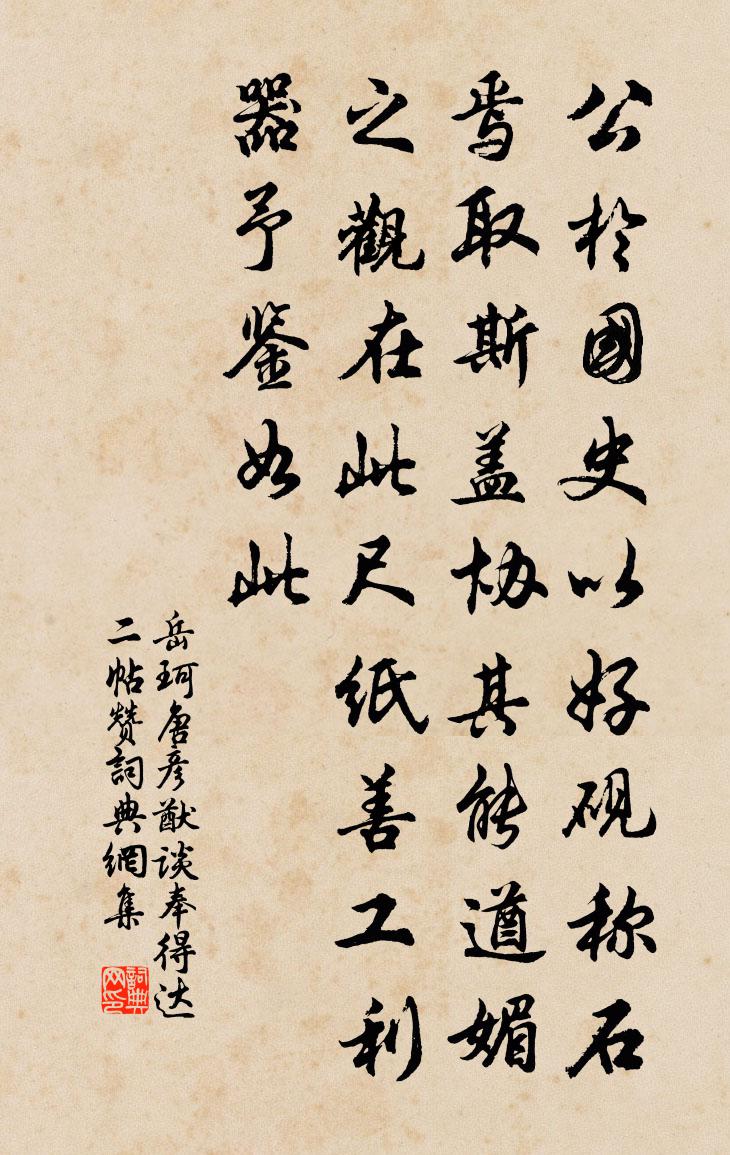 公於國史以好硯称石
焉取斯盖协其能遒媚
之觀在此尺纸善工利
器予鉴如此
岳珂唐彦猷谈奉得达
二帖赞詞典網集
詞典网印